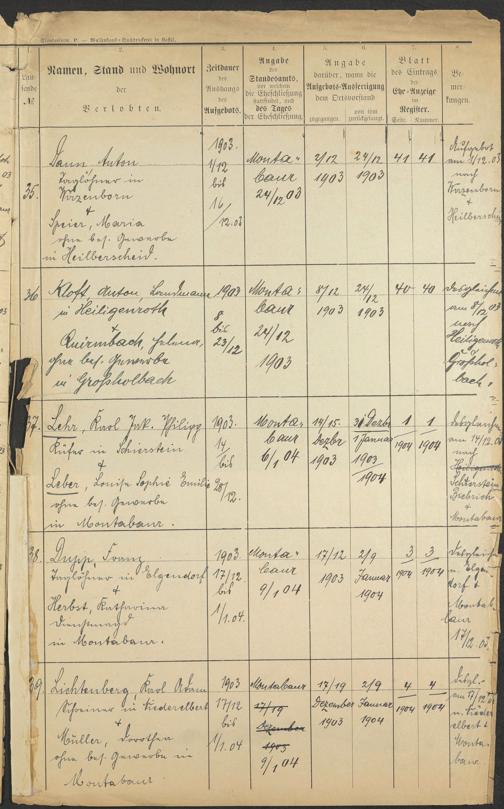 Standesamt. P. — Waisenhaus-Buchdruckerei in Kassel.
Lau-
fende
№
2.
Namen, Stand und Wohnort
der
Verlobten.
3.
Zeitdauer
des
Aushangs
des
Aufgebots.
4.
Angabe
des
Standesamts,
vor welchem
die Eheschließung
stattfindet, und
des Tages
der Eheschließung.
5. 6.
Angabe
darüber, wann die
Aufgebots-Ausfertigung
dem Ortsvorstand
zugegangen.
von ihm
zurückgelangt.
7.
Blatt
des Eintrags
der
Ehe-Anzeige
im
Register.
Seite. Nummer.
8.
Be-
mer-
kungen.
35.
Anton
Taglöhner in
Wirzenborn
+
Speier, Maria
ohne bes. Gewerbe
in Heilberscheid.
1903.
1/12
bis
16/12.03
Monta-
baur
24/12 03
2/12
1903
24/12
1903
41 41
Aufgebot
am 1/12.03
nach
Wirzenborn
+
Heilberscheid
36
Kloft, Anton, Landmann
in Heiligenroth
+
Quirmbach, Helena,
ohne bes. Gewerbe
in Großholbach
1903
8.
bis
23/12
Monta-
baur
24/12
1903
8/12
1903
24/12
1903
40 40
desgleichen
am 8/12 03
nach
Heiligenroth
u.
Großhol-
bach.
37.
Lehr, Karl Jak. Philipp
Küfer in Schierstein
+
Leber, Louise Sophie Emilie
ohne bes. Gewerbe
in Montabaur.
1903.
14/
bis
28/12.
Monta-
baur
6/1 04
14/15.
Dezbr
1903
31 Dezbr
1 Januar
1903
1904
1
1904
1
1904
desgleichen
am 14/12.03
nach
Schierstein
Biebrich
+
Montabaur
38.
Dupp, Franz
Taglöhner in Elgendorf
+
Herbst, Katharina
Dienstmagd
in Montabaur.
1903.
17/12
bis
1/1.04.
Monta-
baur
9/1 04
17/12
1903
2/9
Januar
1904
3
1904
3
1904
desgleichen
n. Elgen-
dorf +
Montab
baur
17/12.03
39.
Lichtenberg, Karl Adam
Schreiner in Niederelbert
+
Müller, Dorothea
ohne bes. Gewerbe in
Montabaur
1903
17/12
bis
1/1.04
Montabaur
17/19
Dezember
1903
9/1 04
17/19
Dezember
1903
2/9
Januar
1904
4
1904
4
1904
desgl.
am 17/12.03
n. Nieder
elbert +
Monta-
baur